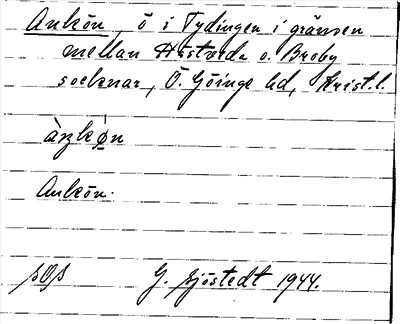 Ankön, ö i Tydingen i gränsen
mellan Hästveda o. Broby
socknar, Ö. Göinge hd, Krist.l.
Ankön.
G. Sjöstedt 1944.